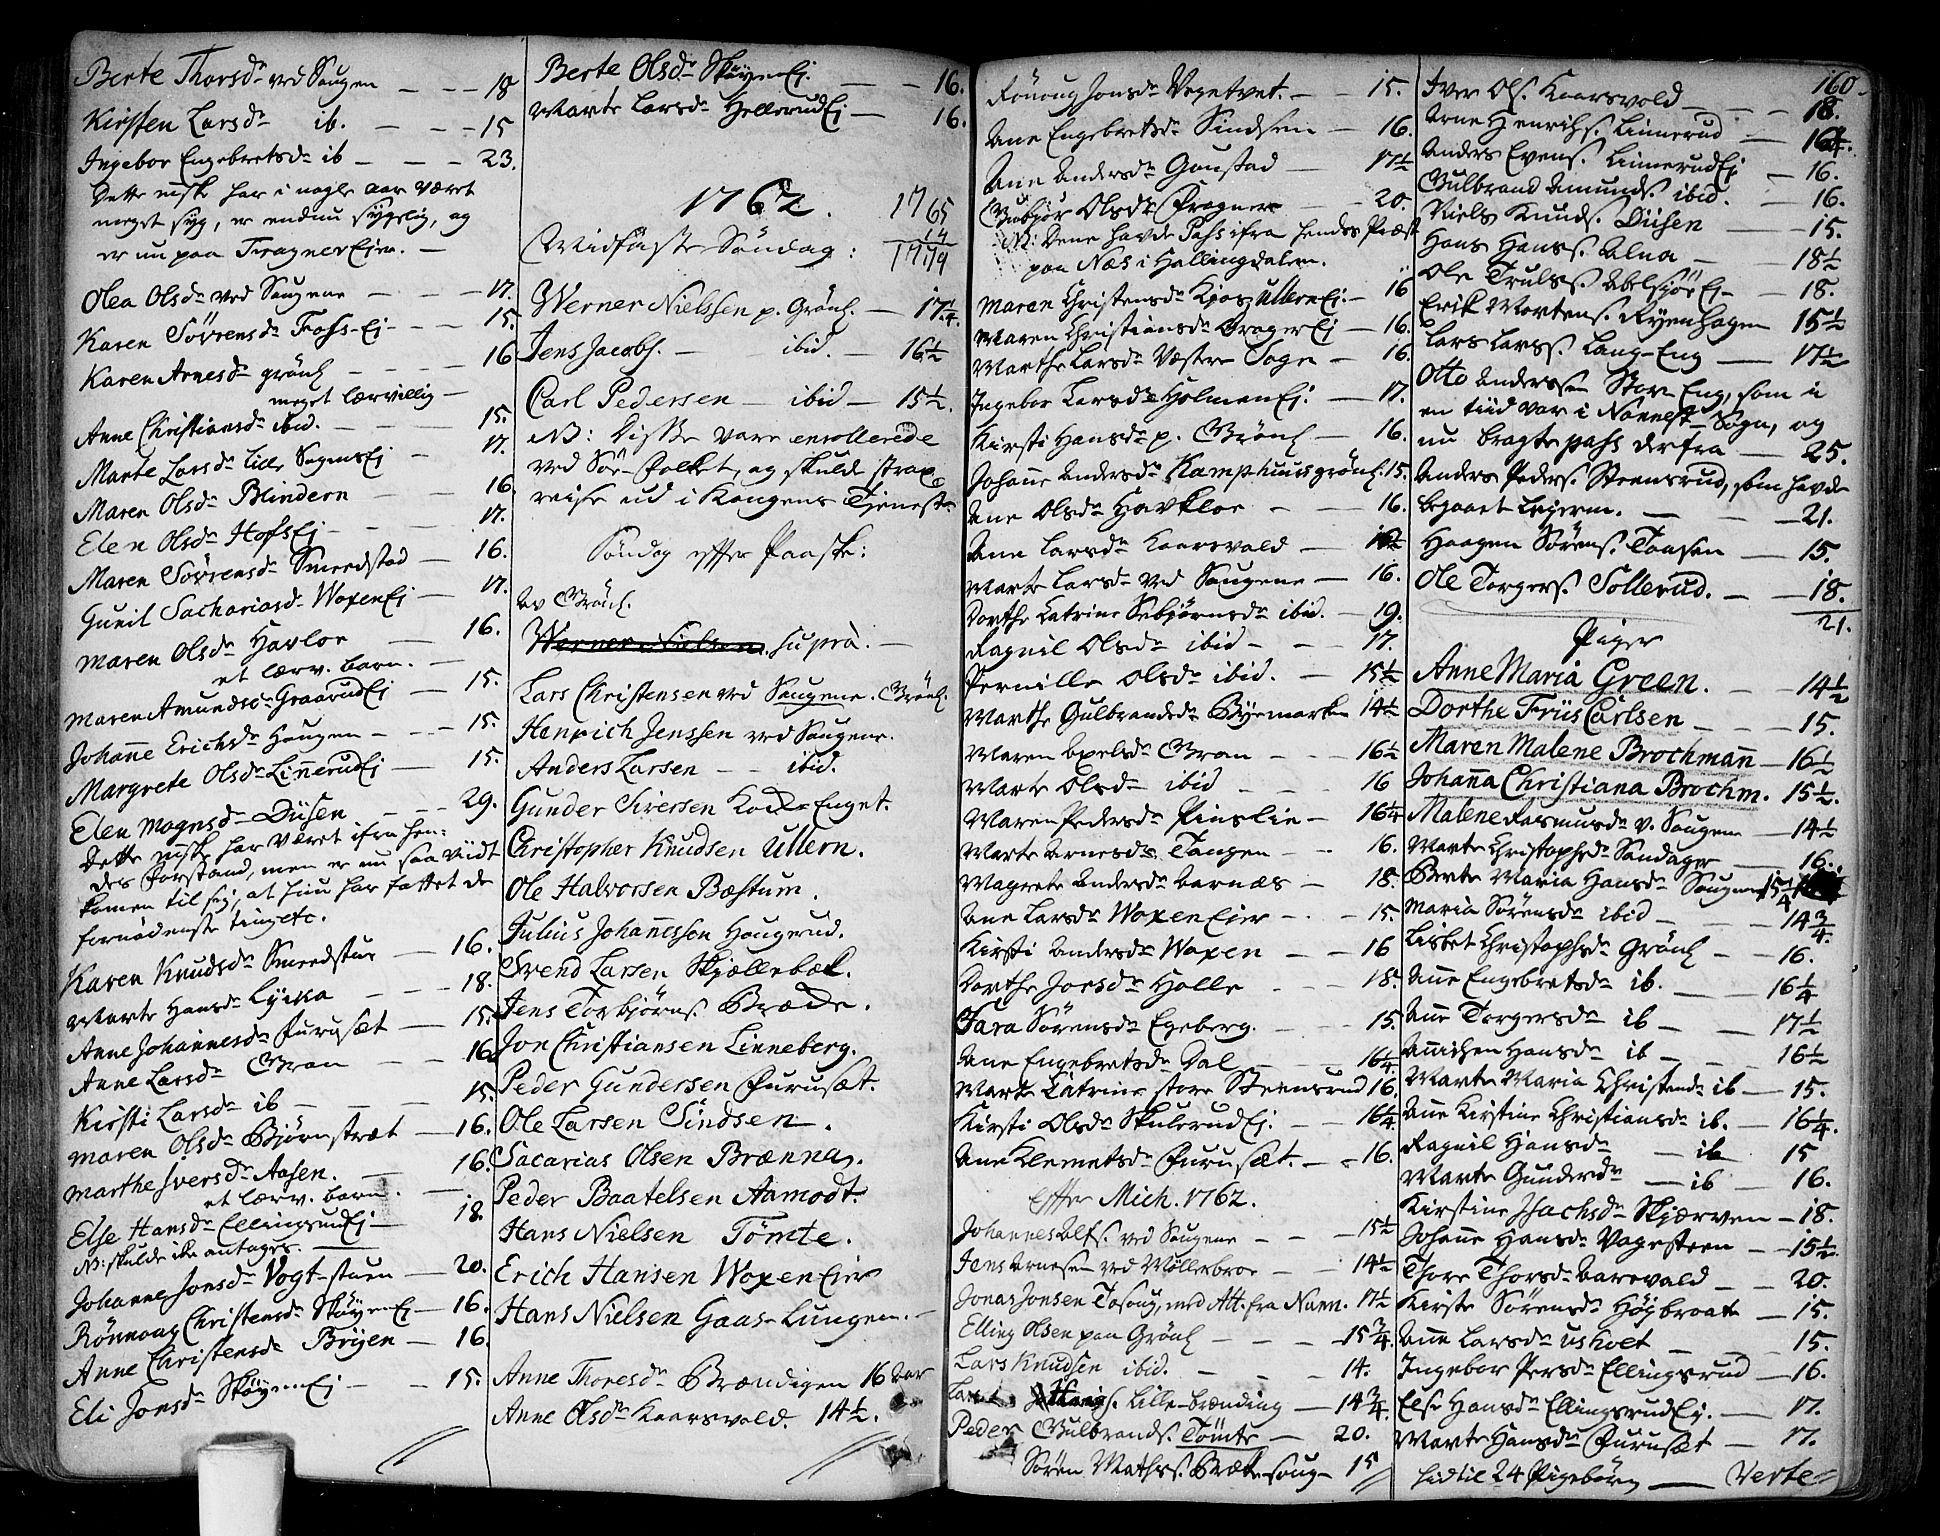 Berte Thorsd. ved Saugen — — — 18
Kirsten Larsd. ib. — — — 15
Ingebor Engebretsd. ib — — — 23.
Dette msk har i nogle aar været
meget syg, er endnu sygelig, og
er nu paa Tragner Eier. —
Olea Olsd. ved Saugene — — — 17.
Karen Sörensd. Foss-Ej — — — 15.
Karen Arnesd. grönl. — — — 16
meget lærvillig —
Anne Christiansd. ibid. — — — 15.
Marte Larsd. Lille SognsEj — 17.
Maren Olsd. Blindern — — 16.
Elen Olsd. Hofs Ej — — 17.
Maren Sörensd. Smedstad — 16.
Guril Sachariasd. Woxen Ej — 17.
Maren Olsd. Havlor — 16.
et lærv. barn. —
Maren Amundsd. Graarud Ej — 15.
Johanne Erichsd. Haugen — — 15.
Margrete Olsd. Linnerud Ej — 15.
Elen Mognsd. Disen — — 29.
Dette msk har været ifra hen-
des Forstand, men er nu saa vidt
kommen til sig, at hun har fattet de
fornødenste ting etc.
Karen Knudsd. Smedstue — 16.
Marte Hansd. Lycka — — 18.
Anne Johannesd. Furusæt — 15.
Anne Larsd. Gran — — 16.
Kirsti Larsd. ib — — — 15.
Maren Olsd. Bjørnstræt — 16.
Marthe Iversd. Aasen. — 16.
et lærv. barn. —
Else Hansd. Ellingsrud Ej — 18.
NB: skulde ike antages. —
Johanne Jonsd. Vogt-stuen — 20.
Rönnoug Christensd. Sköyen Ej — 16.
Anne Christensd. Bryen — 16.
Eli Jonsd. Sköyen Ej — — 15.
Berte Olsd. Sköyen Ej. — — 16.
Marte Larsd. Hellerud Ej — 16.
1762. 1765
14
1779
Midfaste Söndag:
Werner Nielssen p. Grönl. — 17 1/4.
Jens Jacobs. — ibid. — 16 1/2
Carl Pedersen — ibid — 15 1/2.
NB: Disse vare enrollerede
ved Söe-Folket, og skulde strax
reise ud i Kongens Tjeneste
Söndag efter Paaske:
Av Grönl.
Werner Nielsen. supra. —
Lars Christensen ved Saugene. Grönl.
Henrich Jenssen ved Saugene.
Anders Larsen — — ibid.
Gunder Siversen Kode Enget.
Christopher Knudsen Ullern.
Ole Halvorsen Bæstum.
Julius Johannesson Haugerud.
Svend Larsen Skjællebæk.
Jens Torbjörns. Brædde.
Jon Christiansen Linneberg.
Peder Gundersen Furusæt.
Ole Larsen Sindsen —.
Sacarias Olsen Brænna.
Peder Baatelsen Aamodt.
Hans Nielsen Tömte.
Erich Hansen Woxen Eier
Hans Nielsen Gaas-Lungen. —
Anne Thoresd. Brændigen 16 Aar
Anne Olsd. Kaarsvold. 14 1/2.
Rönoug Jonsd. Vegetvet. — — 15.
Ane Engebretsd. Sindsen — 16.
Ane Andersd. Gaustad — 17 1/2
Gubjör Olsd. Fragner — — 20.
NB: Dene havde Pass ifra hendes Præst
paa Næs i Hallingdalen.
Maren Christensd. Kjos Ullern Ej. — 16
Maren Christiansd. Brager Ej — 16.
Marthe Larsd. Vestre Sogn — 16.
Ingebor Larsd. Holmen Ej: — 17.
Kirsti Hansd. p. Grönl — 16.
Johanne Andersd. Kamphuus grönl: 15.
Ane Olsd. Havkloe — — 16.
Ane Larsd. Kaarsvold —
Marte Larsd. ved Saugene — 16.
Dorthe Catrine Sebjörnsd. ibid. — 19.
Raguil Olsd. ibid — — — 17.
Pernille Olsd. ibid. — — 15 1/2
Marthe Gulbrandsd. Byemarken 14 1/2
Maren Axelsd. Gran — — 16 1/2
Marte Olsd. ibid — — — 16
Maren Pedersd. Pinslie — — 16 1/4
Marte Arnesd. Tangen — — 16.
Magrete Andersd. Aarnæs — 18.
Ane Larsd. Woxen Eier — — 15.
Kirsti Andersd. Woxen — — 16
Dorthe Joesd. Holle — — — 18.
Sara Sörensd. Egeberg. — — 15.
Ane Engebretsd. Dal — — 16 1/4
Marte Catrine store Steensrud 16.
Kirsti Olsd. Skulerud Ej. — 16 1/4
Ane Klemetsd. Furusæt. — — 16.
Efter Mich. 1762.
Johannes Alfs. ved Saugene — — 15 1/2
Jens Arnesen ved Möllerbroe — — 14 1/2
Jonas Jonsen Tosoug, med Att. fra Nann. 17 1/2
Elling Olsen paa Grönl — — — 15 3/4.
Lars Knudsen ibid. — — — 14.
Lars Lille-brænding — 14 3/4.
Peder Gulbrands. Tömte — 20.
Sören Mathiss. Brækesoug — 15
160.
Iver Ols. Kaarsvold — — — 18.
Arne Henrichs. Linnerud — 16 1/4.
Anders Evens. Linnerud Ej — 16.
Gulbrand Amunds. ibid. — 16.
Niels Knuds. Disen — — 15.
Hans Hanss. Alna — — 18 1/2
Ole Trulss. Abelsjöe Ej — — 18.
Erik Mortens. Ryenhagen 15 1/2
Lars Larss. Lang-Eng — 17 1/2
Otto Anderssen Store Eng, som i
en tiid var i Nannest. Sogn, og
nu bragte pass derfra — 25.
Anders Peders. Steensrud, som havde
begaaet Leyerm. — — — 21.
Haagen Sörens. Tansen — — 15.
Ole Torgers. Sollerud. — — 18.
21.
Piger
Anne Maria Green. — — 14 1/2
Dorthe Friis Carlsen — — — 15.
Maren Malene Brochmann — 16 1/2
Johanna Christiana Brochm. 15 1/2.
Malene Rasmusd. v. Saugene — 14 1/2
Marte Christophd. Sandager — 16.
Berte Maria Hansd. Saugene 15 1/4
Maria Sörensd. ibid — — 14 3/4.
Lisbet Christophsd. Grönl — — 16.
Ane Engebretsd. ib. — — 16 1/4
Ane Torgersd. ib — — 17 1/2
Anichen Hansd. ib — — 16 1/2
Marte Maria Christensd. ib — 15.
Ane Kirstine Christiansd. ib. — 16 1/4.
Raguil Hansd. — ib — 15
Marte Gundersd. — ib — 16.
Kirstine Isachsd. Skjærven — 18.
Johanne Hansd. Vagesteen — 15 1/2.
Thore Thorsd. Aarsvold — — 20.
Kirste Sörensd. Höybraat — 15.
Ane Larsd. Usholt — — 15.
Ingebor Persd. Ellingsrud — 16.
Else Hansd. Ellingsrud Ej. — 17.
Marte Hansd. Furusæt — 17.
hidtil 24 Pigebörn — Verte